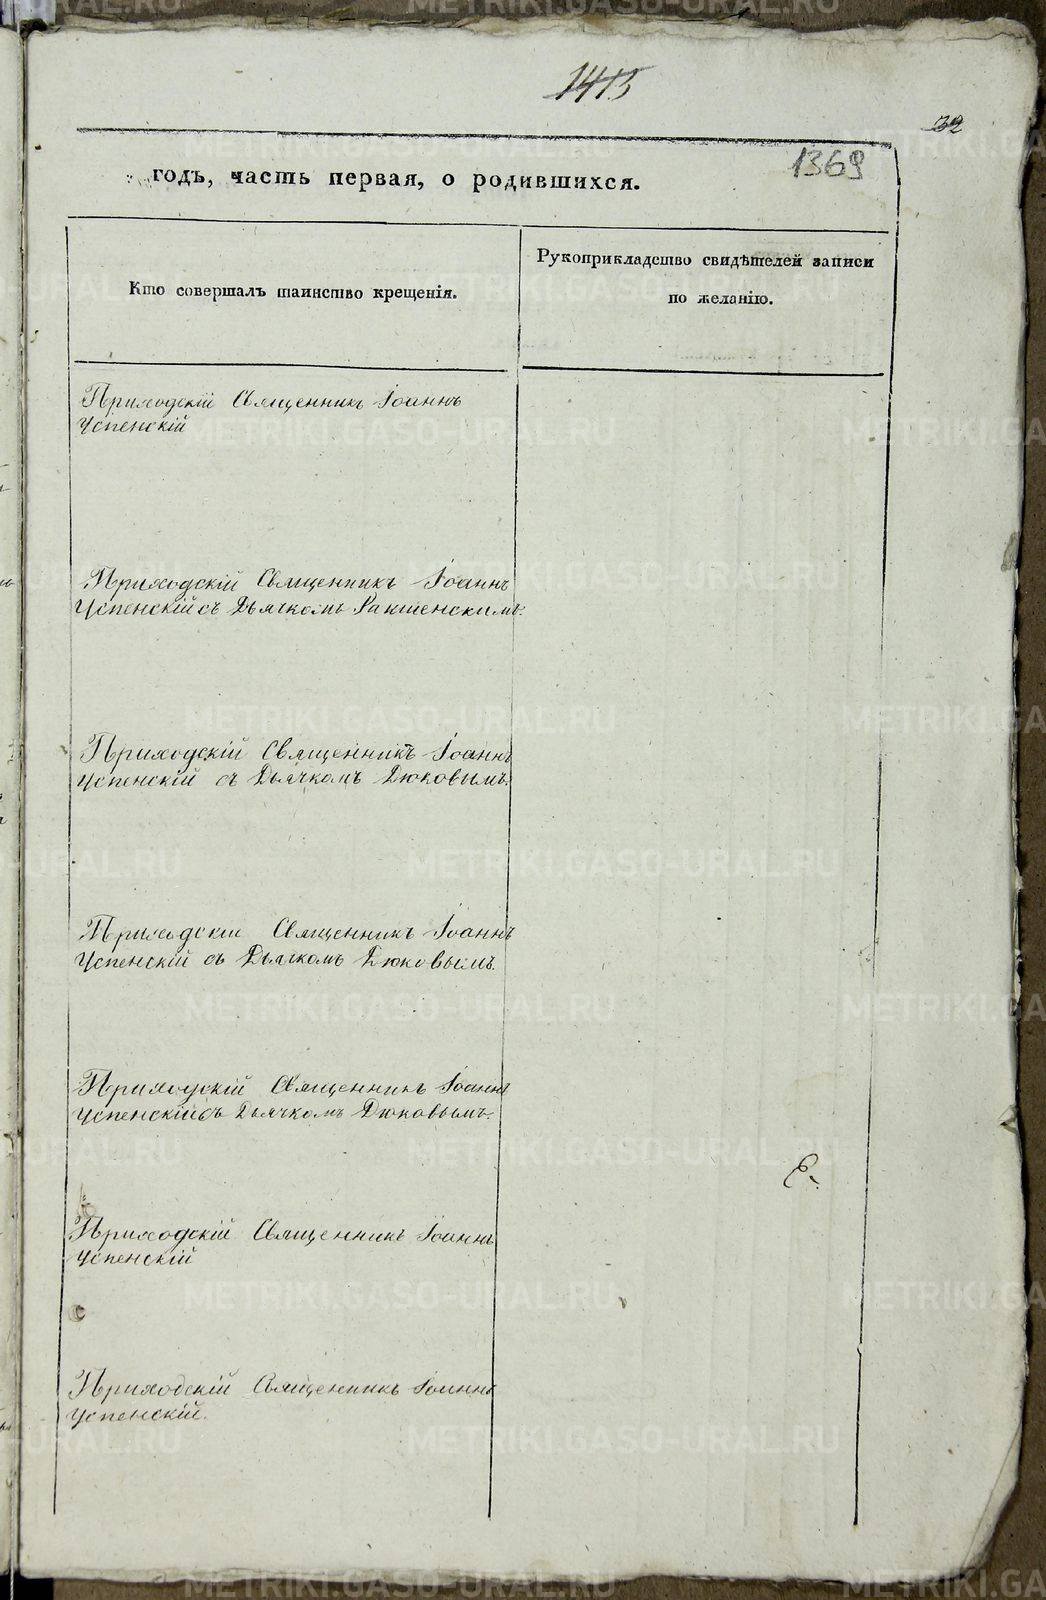 1415
32
1369
годъ, часть первая, о родившихся.
Кто совершалъ таинство крещенія.
Рукоприкладство свидѣтелей записи
по желанію.
Приходскій Священникъ Іоаннъ
Успенскій
Приходскій Священникъ Іоаннъ
Успенскій съ Дьячкомъ Ракшенскимъ.
Приходскій Священникъ Іоаннъ
Успенскій съ Дьячкомъ Дюковымъ.
Приходскій Священникъ Іоаннъ
Успенскій съ Дьячкомъ Дюковымъ.
Приходскій Священникъ Іоаннъ
Успенскій съ Дьячкомъ Дюковымъ.
Е.
Приходскій Священникъ Іоаннъ
Успенскій
Приходскій Священникъ Іоаннъ
Успенскій.
METRIKI.GASO-URAL.RU